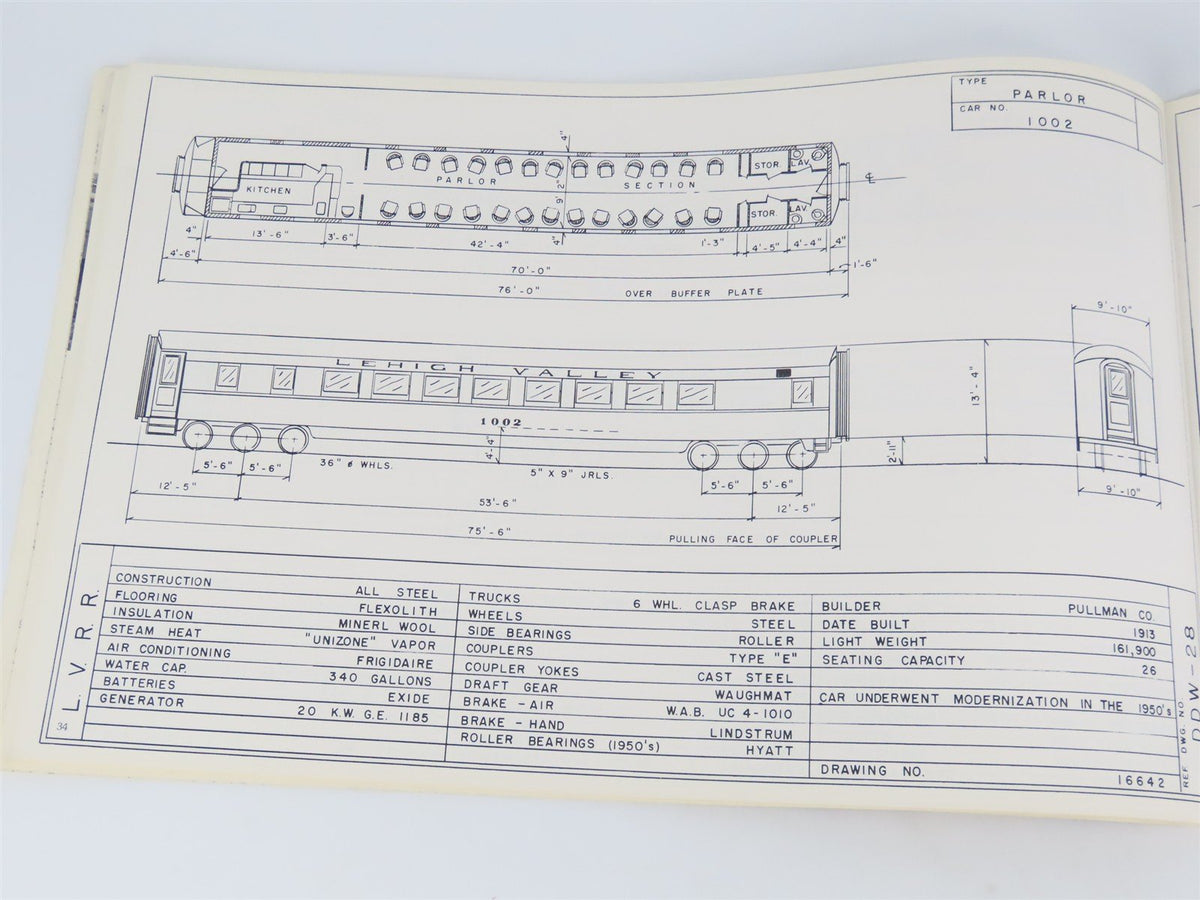 TYPE
PARLOR
CAR NO.
1002
4"
KITCHEN
PARLOR SECTION
9'-2"
STOR. LAV.
STOR. LAV.
℄
4"
4" 13'-6" 3'-6" 42'-4" 1'-3" 4'-5" 4'-4" 4"
4'-6" 70'-0" 1'-6"
76'-0" OVER BUFFER PLATE
9'-10"
LEHIGH VALLEY
13'-4"
1002
4'-4"
2'-11"
5'-6" 5'-6" 36" ø WHLS. 5" X 9" JRLS. 5'-6" 5'-6"
9'-10"
12'-5" 53'-6" 12'-5"
75'-6" PULLING FACE OF COUPLER
L. V. R. R.
34
CONSTRUCTION ALL STEEL
FLOORING FLEXOLITH
INSULATION MINERL WOOL
STEAM HEAT "UNIZONE" VAPOR
AIR CONDITIONING FRIGIDAIRE
WATER CAP. 340 GALLONS
BATTERIES EXIDE
GENERATOR 20 K.W. G.E. 1185
TRUCKS 6 WHL. CLASP BRAKE
WHEELS STEEL
SIDE BEARINGS ROLLER
COUPLERS TYPE "E"
COUPLER YOKES CAST STEEL
DRAFT GEAR WAUGHMAT
BRAKE - AIR W.A.B. UC 4-1010
BRAKE - HAND LINDSTRUM
ROLLER BEARINGS (1950's) HYATT
BUILDER PULLMAN CO.
DATE BUILT 1913
LIGHT WEIGHT 161,900
SEATING CAPACITY 26
CAR UNDERWENT MODERNIZATION IN THE 1950's
DRAWING NO. 16642
REF. DWG. NO.
DDW-28